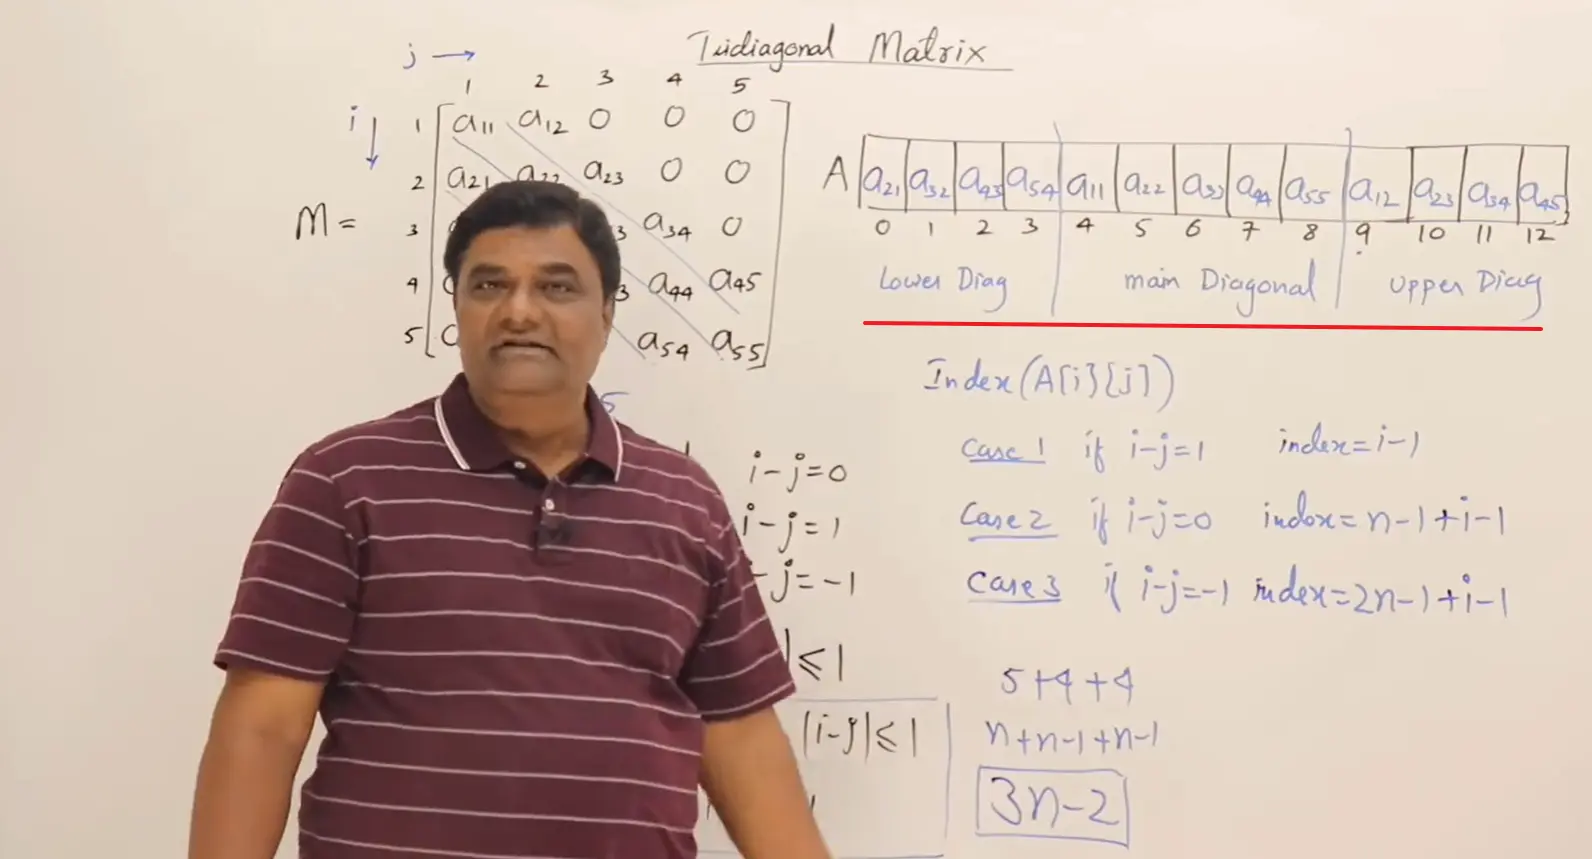 Tridiagonal Matrix
j →
1 2 3 4 5
i ↓
1 a11 a12 0 0 0
2 a21 a22 a23 0 0
M = 3 3 a34 0
4 3 a44 a45
5 a54 a55
A a21 a32 a43 a54 a11 a22 a33 a44 a55 a12 a23 a34 a45
0 1 2 3 4 5 6 7 8 9 10 11 12
Lower Diag main Diagonal upper Diag
Index(A[i][j])
Case 1 if i-j=1 index=i-1
Case 2 if i-j=0 index=n-1+i-1
Case 3 if i-j=-1 index=2n-1+i-1
5
i-j=0
i-j=1
-j=-1
|≤1
|i-j|≤1
5+4+4
n+n-1+n-1
3n-2